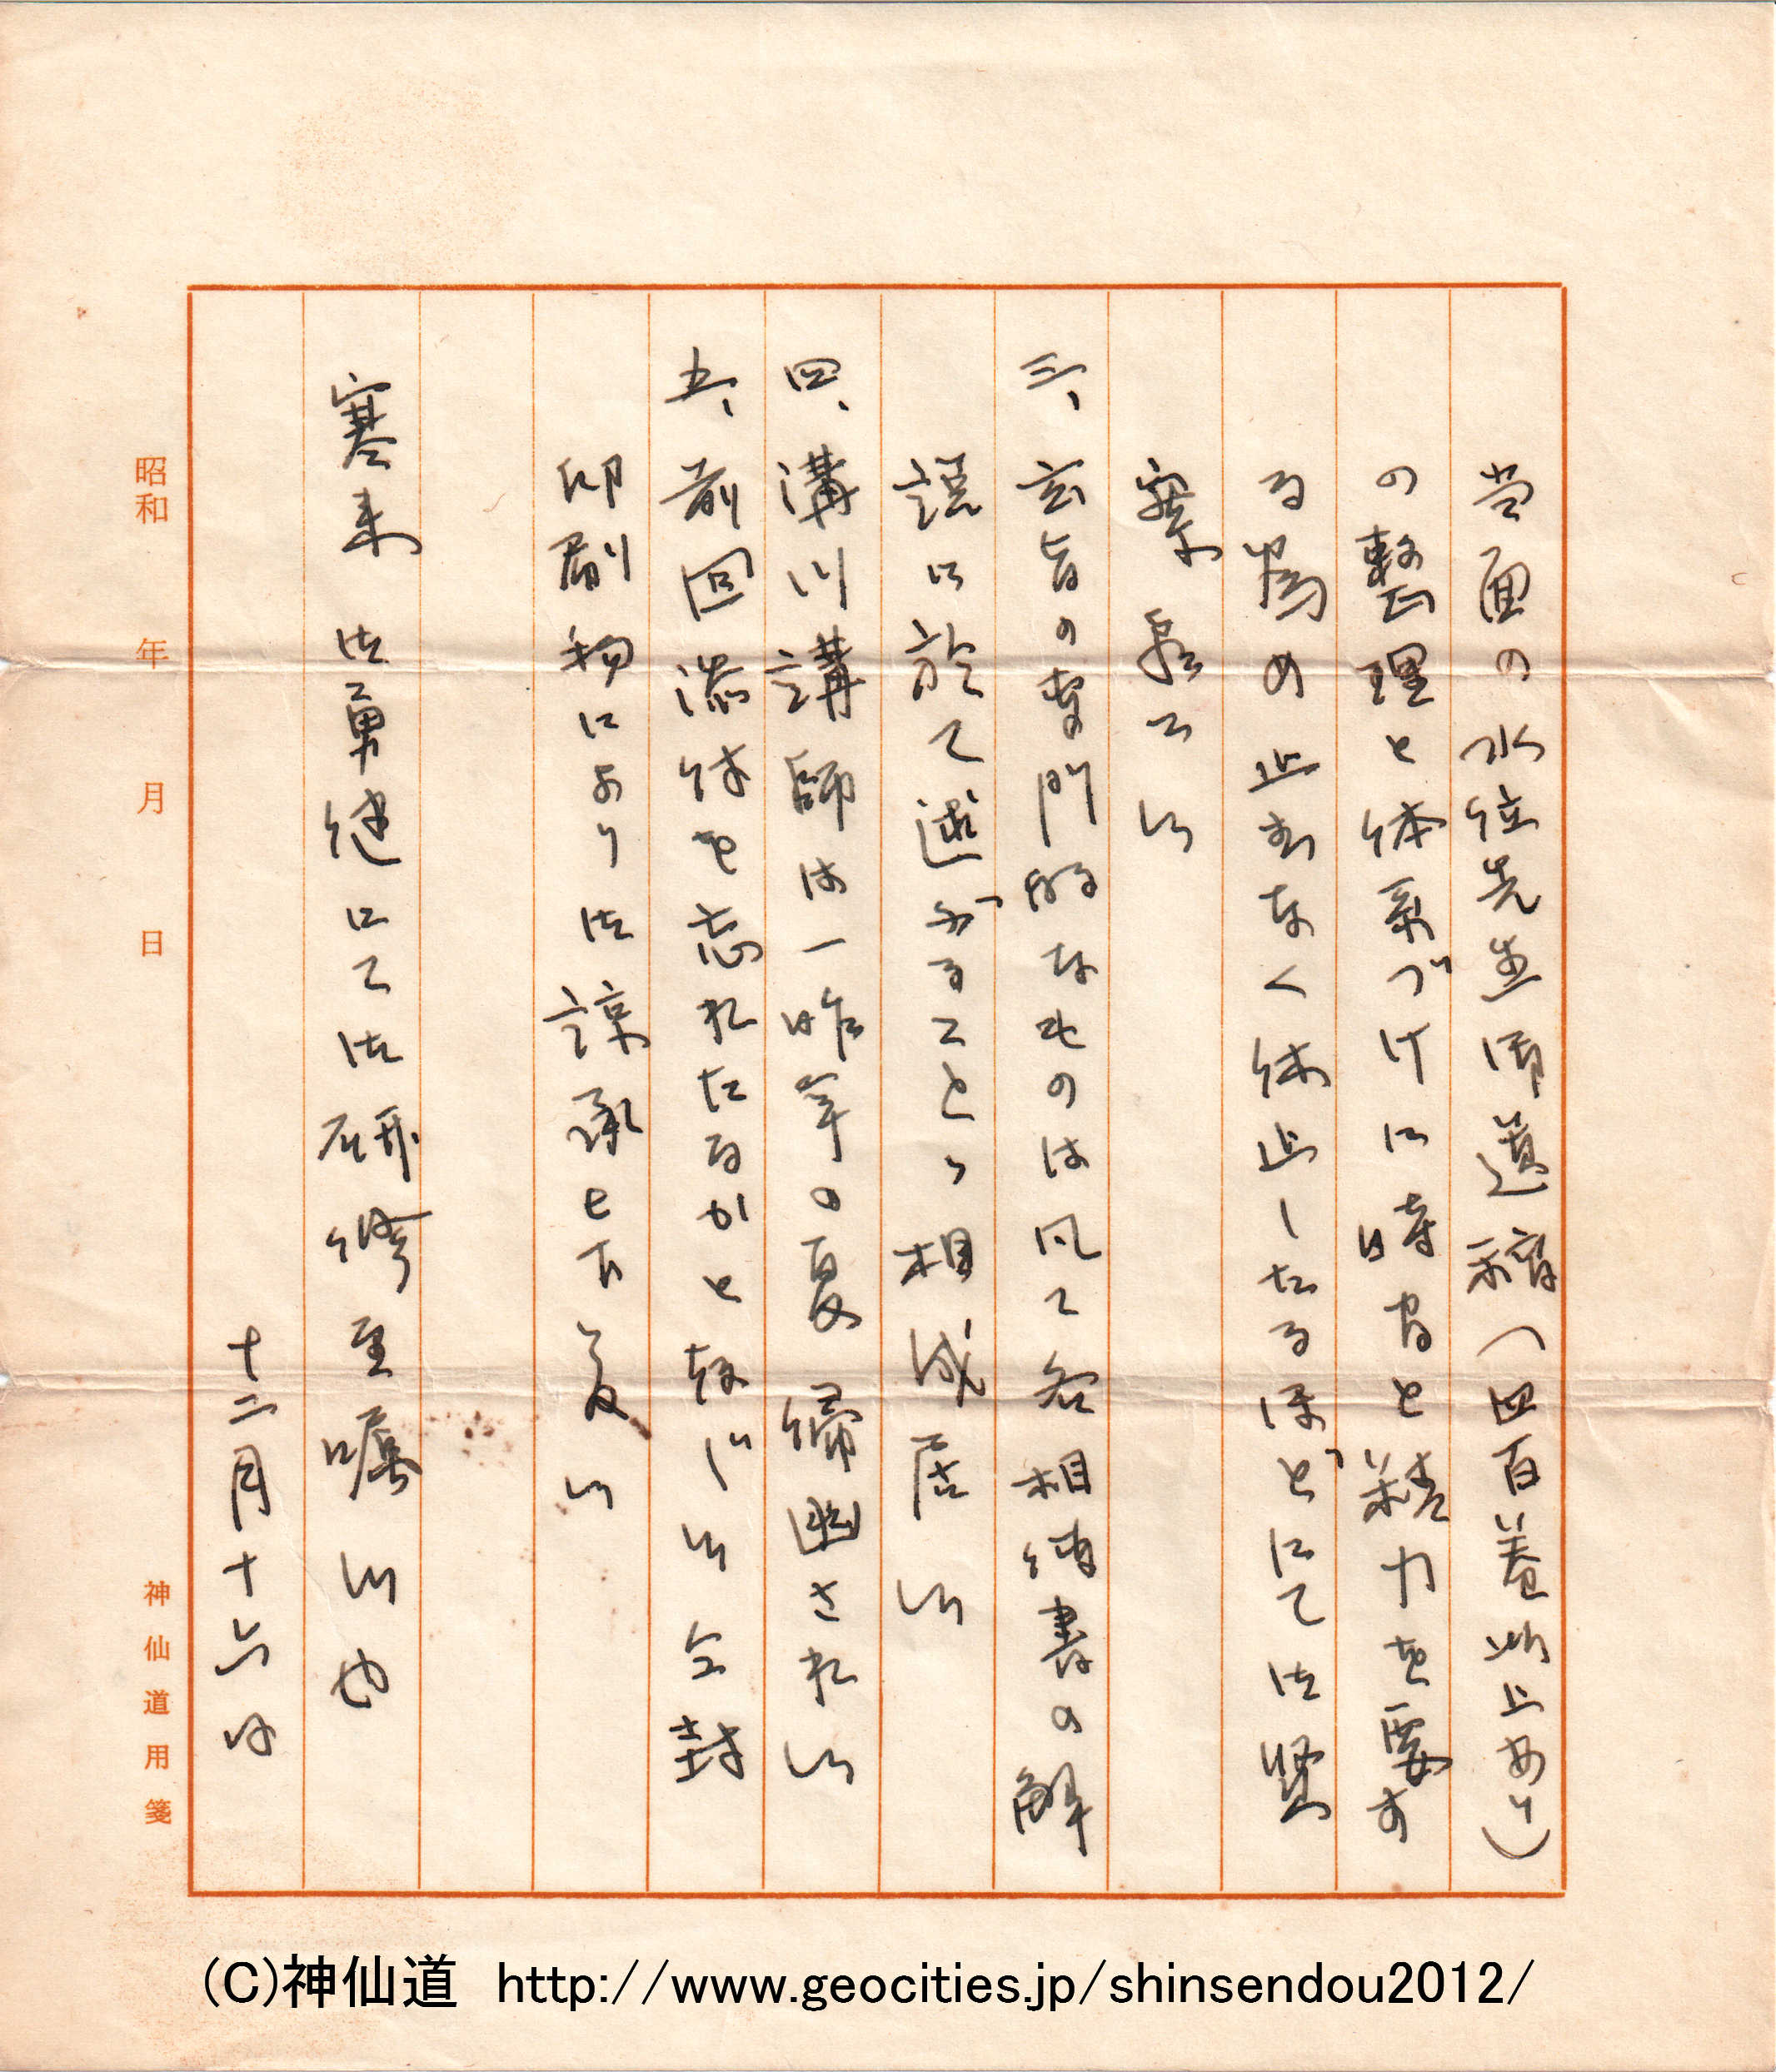 当面の水位先生御遺稿(四百巻以上あり)
の整理と体系づけに時間と精力を要す
る為め止むなく休止したるほどにて御賢
察願上候
三、玄旨の専門的なものは凡て各相伝書の解
説に於て述ぶることゝ相成居候
四、溝川講師は一昨年の夏帰幽され候
五、前回添付を忘れたるかと存じ候 同封
印刷物により御諒承を下され度候
寒来 御勇健にて御研鑽重嘱候也
十二月十六日
昭和 年 月 日
神仙道用箋
(C)神仙道 http://www.geocities.jp/shinsendou2012/